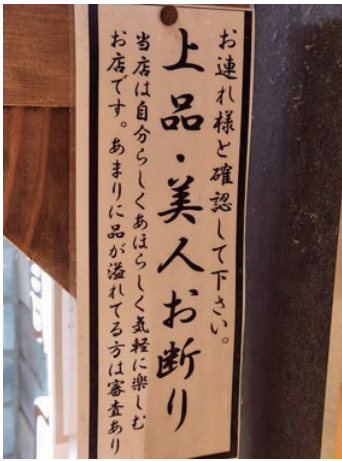 お連れ様と確認して下さい。
上品・美人お断り
当店は自分らしくあほらしく気軽に楽しむ
お店です。あまりに品が溢れてる方は審査あり